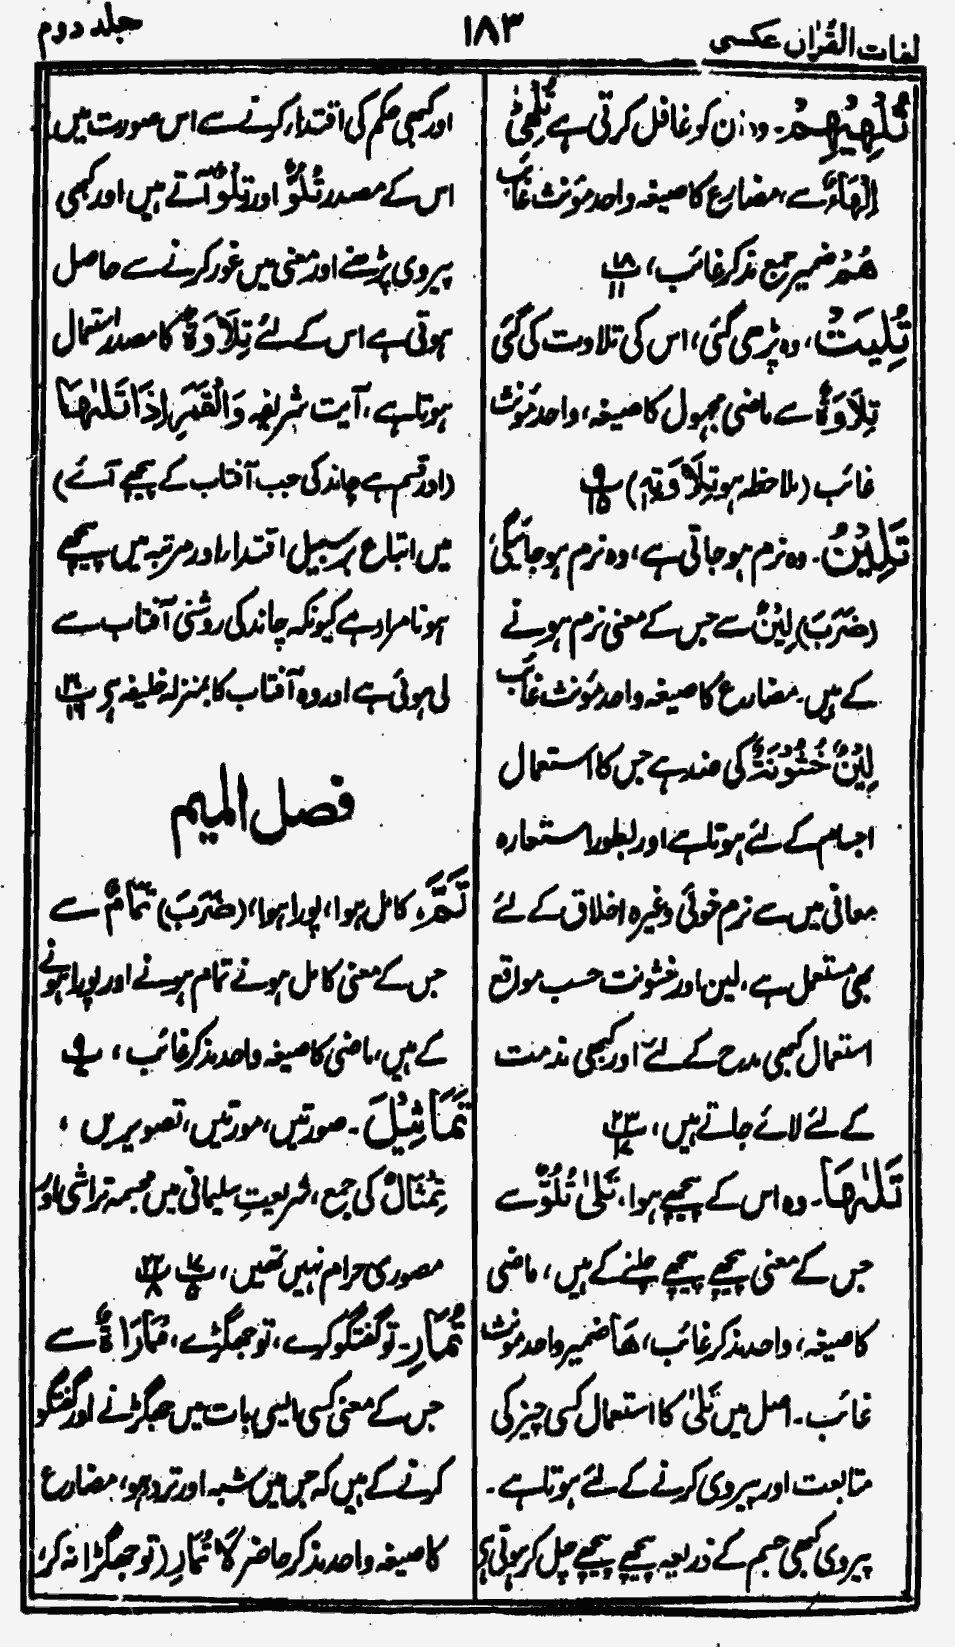 لغات القرآن عکسی
۱۸۳
جلد دوم
تُلْهِيْهِمْ۔ وہ ان کو غافل کرتی ہے تُلْهِيْ
اِلْهَاءٌ سے، مضارع کا صیغہ واحد مؤنث غائب
هُمْ ضمیر جمع مذکر غائب، ۱۸/۱۱
تُلِيَتْ، وہ پڑھی گئی، اس کی تلاوت کی گئی
تِلَاوَةٌ سے ماضی مجہول کا صیغہ، واحد مؤنث
غائب (ملاحظہ ہو تِلَاوَتِهٖ) ۹/۱۵
تَلِيْنُ۔ وہ نرم ہو جاتی ہے، وہ نرم ہو جائیگی
(ضَرَبَ) لِيْنٌ سے جس کے معنی نرم ہونے
کے ہیں۔ مضارع کا صیغہ واحد مؤنث غائب
لِيْنٌ خُشُوْنَةٌ کی ضد ہے جس کا استعمال
اجسام کے لئے ہوتا ہے اور بطور استعارہ
معانی میں سے نرم خوئی وغیرہ اخلاق کے لئے
بھی مستعمل ہے، لین اور خشونت حسب مواقع
استعمال کبھی مدح کے لئے اور کبھی مذمت
کے لئے لائے جاتے ہیں، ۲۳/۱۷
تَلٰىهَا۔ وہ اس کے پیچھے ہوا، تَلٰى تُلُوٌّ سے
جس کے معنی پیچھے پیچھے چلنے کے ہیں، ماضی
کا صیغہ، واحد مذکر غائب، هَا ضمیر واحد مؤنث
غائب۔ اصل میں تَلٰى کا استعمال کسی چیز کی
متابعت اور پیروی کرنے کے لئے ہوتا ہے۔
پیروی کبھی جسم کے ذریعہ پیچھے پیچھے چل کر ہوتی ہی
اور کبھی حکم کی اقتدار کرنے سے اس صورت میں
اس کے مصدر تُلُوٌّ اور تِلْوٌ آتے ہیں اور کبھی
پیروی پڑھنے اور معنی میں غور کرنے سے حاصل
ہوتی ہے اس کے لئے تِلَاوَةٌ کا مصدر استعمال
ہوتا ہے، آیت شریفہ وَالْقَمَرِ اِذَا تَلٰىهَا
(اور قسم ہے چاند کی جب آفتاب کے پیچھے آئے)
میں اتباع بر سبیل اقتدار اور مرتبہ میں پیچھے
ہونا مراد ہے کیونکہ چاند کی روشنی آفتاب سے
لی ہوئی ہے اور وہ آفتاب کا بمنزلہ خلیفہ ہی ۳۰/۱۶
فصل المیم
تَمَّ، کامل ہوا، پورا ہوا، (ضَرَبَ) تَمَامٌ سے
جس کے معنی کامل ہونے تمام ہونے اور پورا ہونے
کے ہیں، ماضی کا صیغہ واحد مذکر غائب،
تَمَاثِيْلَ۔ صورتیں، مورتیں، تصویریں،
تِمْثَالٌ کی جمع، شریعتِ سلیمانی میں مجسمہ تراشی اور
مصوری حرام نہیں تھیں، ۱۷/۵ ۲۲/۸
تُمَارِ۔ تو گفتگو کرے، تو جھگڑے، مُمَارَاةٌ سے
جس کے معنی کسی ایسی بات میں جھگڑنے اور گفتگو
کرنے کے ہیں کہ جس میں شبہ اور تردد ہو، مضارع
کا صیغہ واحد مذکر حاضر لَا تُمَارِ (تو جھگڑا نہ کر،